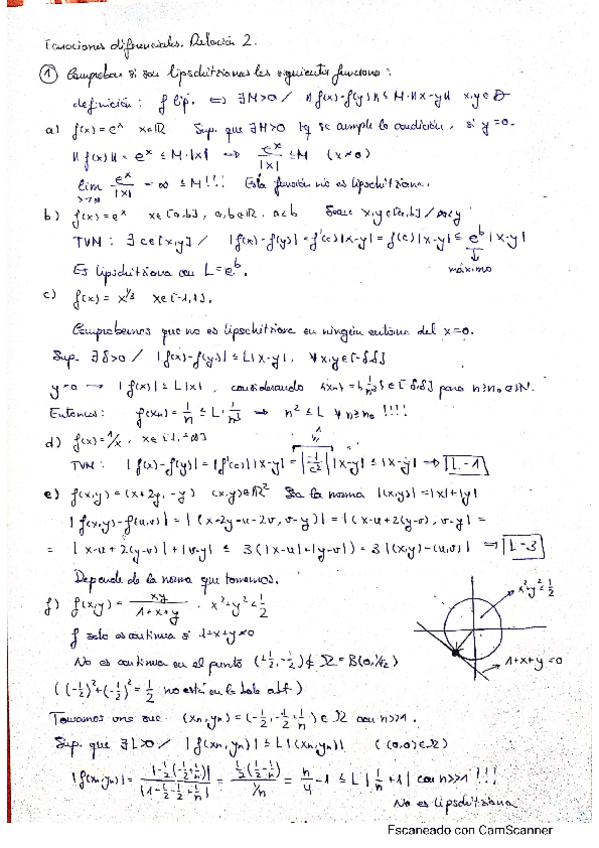 Ecuaciones diferenciales. Relación 2.
① Comprobar si son lipschitzianas las siguientes funciones:
definición: f lip. ⟺ ∃M>0 / ||f(x)-f(y)|| ≤ M·||x-y|| x,y∈D
a) f(x)=eˣ x∈ℝ Sup. que ∃M>0 tq se cumple la condición, si y=0.
||f(x)|| = eˣ ≤ M·|x| → eˣ/|x| ≤ M (x≠0)
lim eˣ/|x| = ∞ ≤ M!!! Esta función no es lipschitziana.
b) f(x)=eˣ x∈[a,b], a,b∈ℝ, a<b Sean x,y∈[a,b] / x<y
TVM: ∃ c∈[x,y] / |f(x)-f(y)| = f'(c)|x-y| = f(c)|x-y| ≤ eᵇ|x-y|
máximo
Es lipschitziana con L=eᵇ.
c) f(x) = x^1/3 x∈[-1,1].
Comprobemos que no es lipschitziana en ningún entorno del x=0.
Sup. ∃δ>0 / |f(x)-f(y)| ≤ L|x-y|, ∀x,y∈[-δ,δ]
y=0 → |f(x)| ≤ L|x|, considerando {xn} = {1/n³} ∈ [-δ,δ] para n≥n₀∈ℕ.
Entonces: f(xn) = 1/n ≤ L·1/n³ → n² ≤ L ∀n≥n₀ !!!!
d) f(x)=1/x, x∈[1,+∞]
TVM: |f(x)-f(y)| = |f'(c)||x-y| = |-1/c²||x-y| ≤ |x-y| → L=1
e) f(x,y) = (x+2y, -y) (x,y)∈ℝ² Sea la norma |(x,y)| = |x|+|y|
|f(x,y)-f(u,v)| = |(x+2y-u-2v, v-y)| = |(x-u+2(y-v), v-y| =
= |x-u+2(y-v)|+|v-y| ≤ 3(|x-u|+|y-v|) = 3|(x,y)-(u,v)| → L=3
Depende de la norma que tomemos.
f) f(x,y) = xy/1+x+y . x²+y²<1/2
x²+y²=1/2
f solo es continua si 1+x+y≠0
No es continua en el punto (-1/2,-1/2) ∉ Ω = B(0,1/√2)
1+x+y=0
((-1/2)²+(-1/2)²=1/2 no está en la bola abt.)
Tomamos una suc. (xn,yn) = (-1/2,-1/2+1/n) ∈ Ω con n>>1.
Sup. que ∃L>0 / |f(xn,yn)| ≤ L|(xn,yn)| ((0,0)∈Ω)
|f(xn,yn)| = |-1/2(-1/2+1/n)|/|1-1/2-1/2+1/n| = 1/2(1/2-1/n)/1/n = n/4-1 ≤ L|1/n+1| con n>>1 !!!
No es lipschitziana
Escaneado con CamScanner